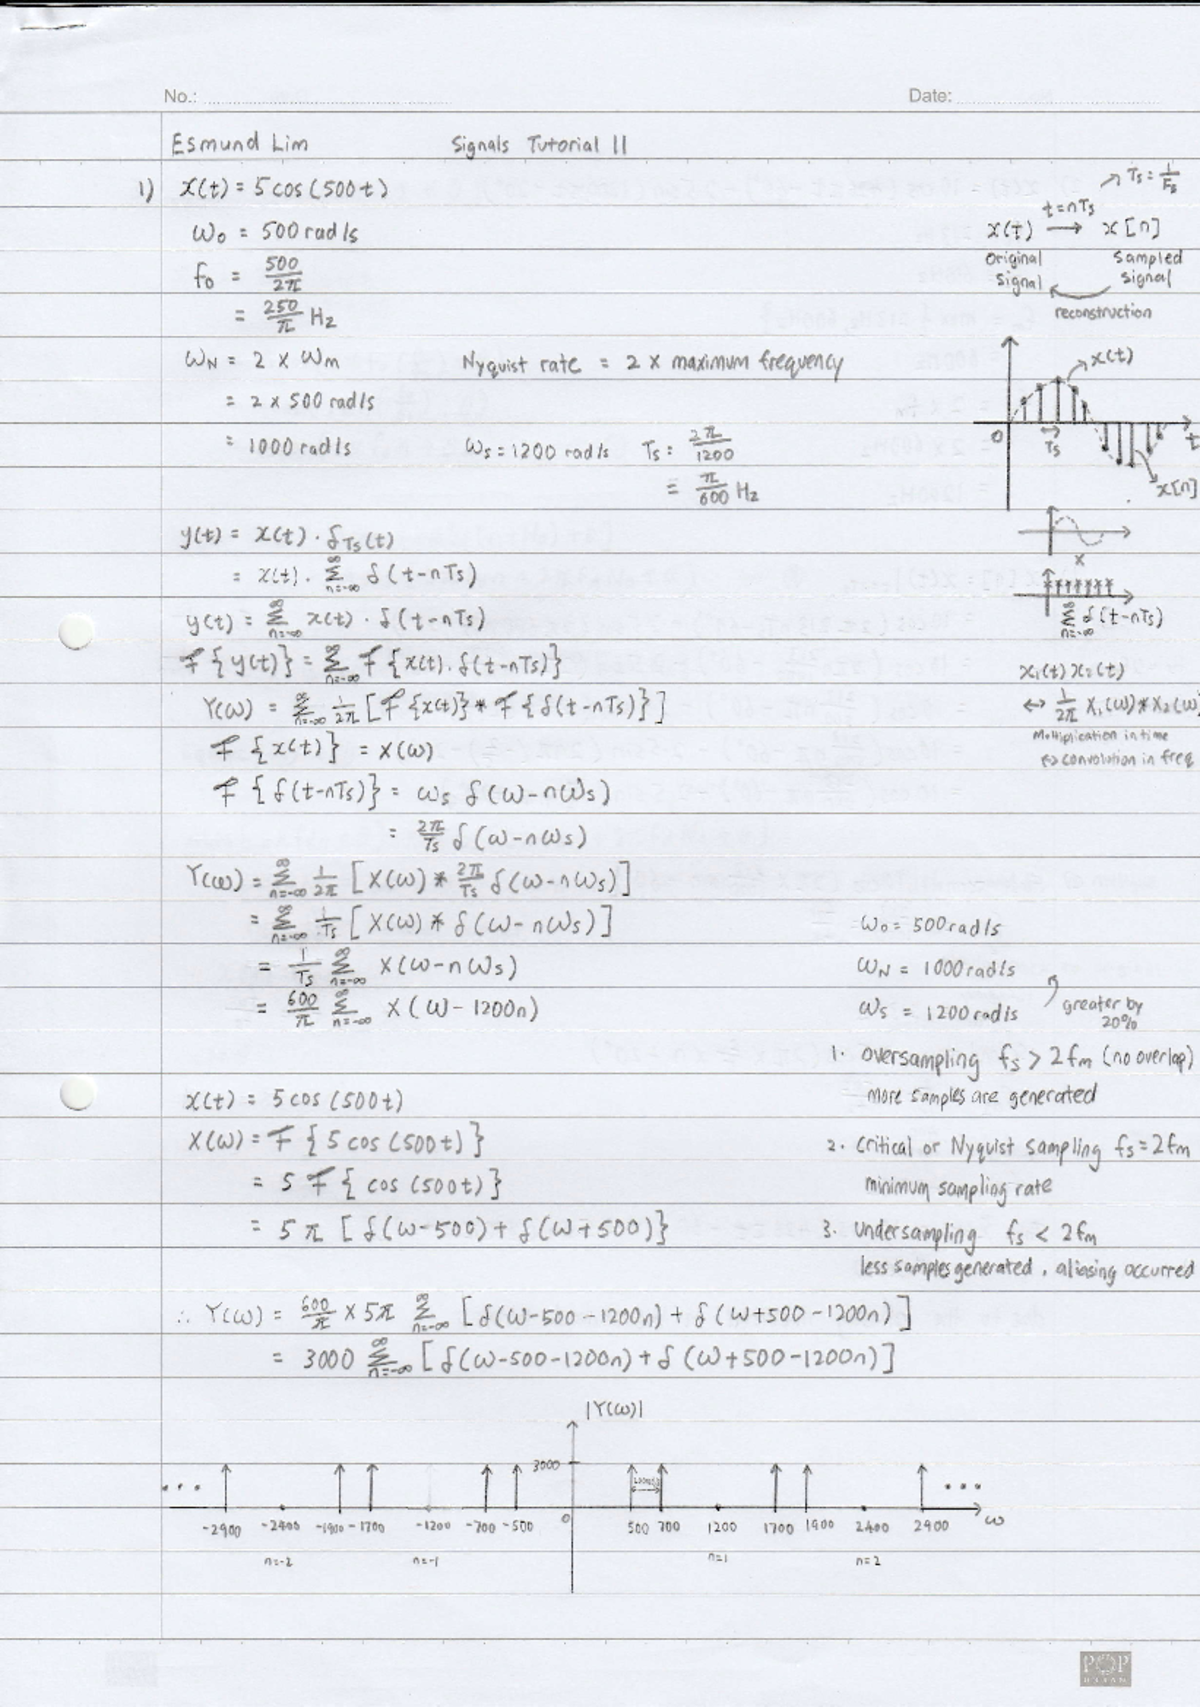 No.: Date:
Esmund Lim Signals Tutorial 11
1) x(t) = 5 cos (500t)
ω₀ = 500 rad/s
f₀ = 500/2π
= 250/π Hz
Ts = 1/Fs
t = nTs
x(t) → x[n]
Original Signal
Sampled Signal
reconstruction
ω_N = 2 × ω_m Nyquist rate = 2 × maximum frequency
= 2 × 500 rad/s
= 1000 rad/s ω_s = 1200 rad/s Ts = 2π/1200
= π/600 Hz
x(t)
0 Ts t
x[n]
x
∑_{n=-∞}^{∞} δ(t-nTs)
y(t) = x(t) · δ_Ts(t)
= x(t) · ∑_{n=-∞}^{∞} δ(t-nTs)
y(t) = ∑_{n=-∞}^{∞} x(t) · δ(t-nTs)
F{y(t)} = ∑_{n=-∞}^{∞} F{x(t) · δ(t-nTs)}
Y(ω) = ∑_{n=-∞}^{∞} 1/2π [F{x(t)} * F{δ(t-nTs)}]
F{x(t)} = X(ω)
F{δ(t-nTs)} = ω_s δ(ω-nω_s)
= 2π/Ts δ(ω-nω_s)
x₁(t) x₂(t)
↔ 1/2π X₁(ω) * X₂(ω)
Multiplication in time
↔ convolution in freq
Y(ω) = ∑_{n=-∞}^{∞} 1/2π [X(ω) * 2π/Ts δ(ω-nω_s)]
= ∑_{n=-∞}^{∞} 1/Ts [X(ω) * δ(ω-nω_s)]
= 1/Ts ∑_{n=-∞}^{∞} X(ω-nω_s)
= 600/π ∑_{n=-∞}^{∞} X(ω-1200n)
ω₀ = 500 rad/s
ω_N = 1000 rad/s
ω_s = 1200 rad/s
greater by 20%
1. oversampling f_s > 2f_m (no overlap)
more samples are generated
2. Critical or Nyquist sampling f_s = 2f_m
minimum sampling rate
3. undersampling f_s < 2f_m
less samples generated, aliasing occurred
x(t) = 5 cos (500t)
X(ω) = F{5 cos (500t)}
= 5 F{cos (500t)}
= 5π [δ(ω-500) + δ(ω+500)}
∴ Y(ω) = 600/π × 5π ∑_{n=-∞}^{∞} [δ(ω-500-1200n) + δ(ω+500-1200n)]
= 3000 ∑_{n=-∞}^{∞} [δ(ω-500-1200n) + δ(ω+500-1200n)]
|Y(ω)|
3000
-2900 -2400 -1900 -1700 -1200 -700 -500 0 500 700 1200 1700 1900 2400 2900 ω
n=-2 n=-1 n=1 n=2
POP